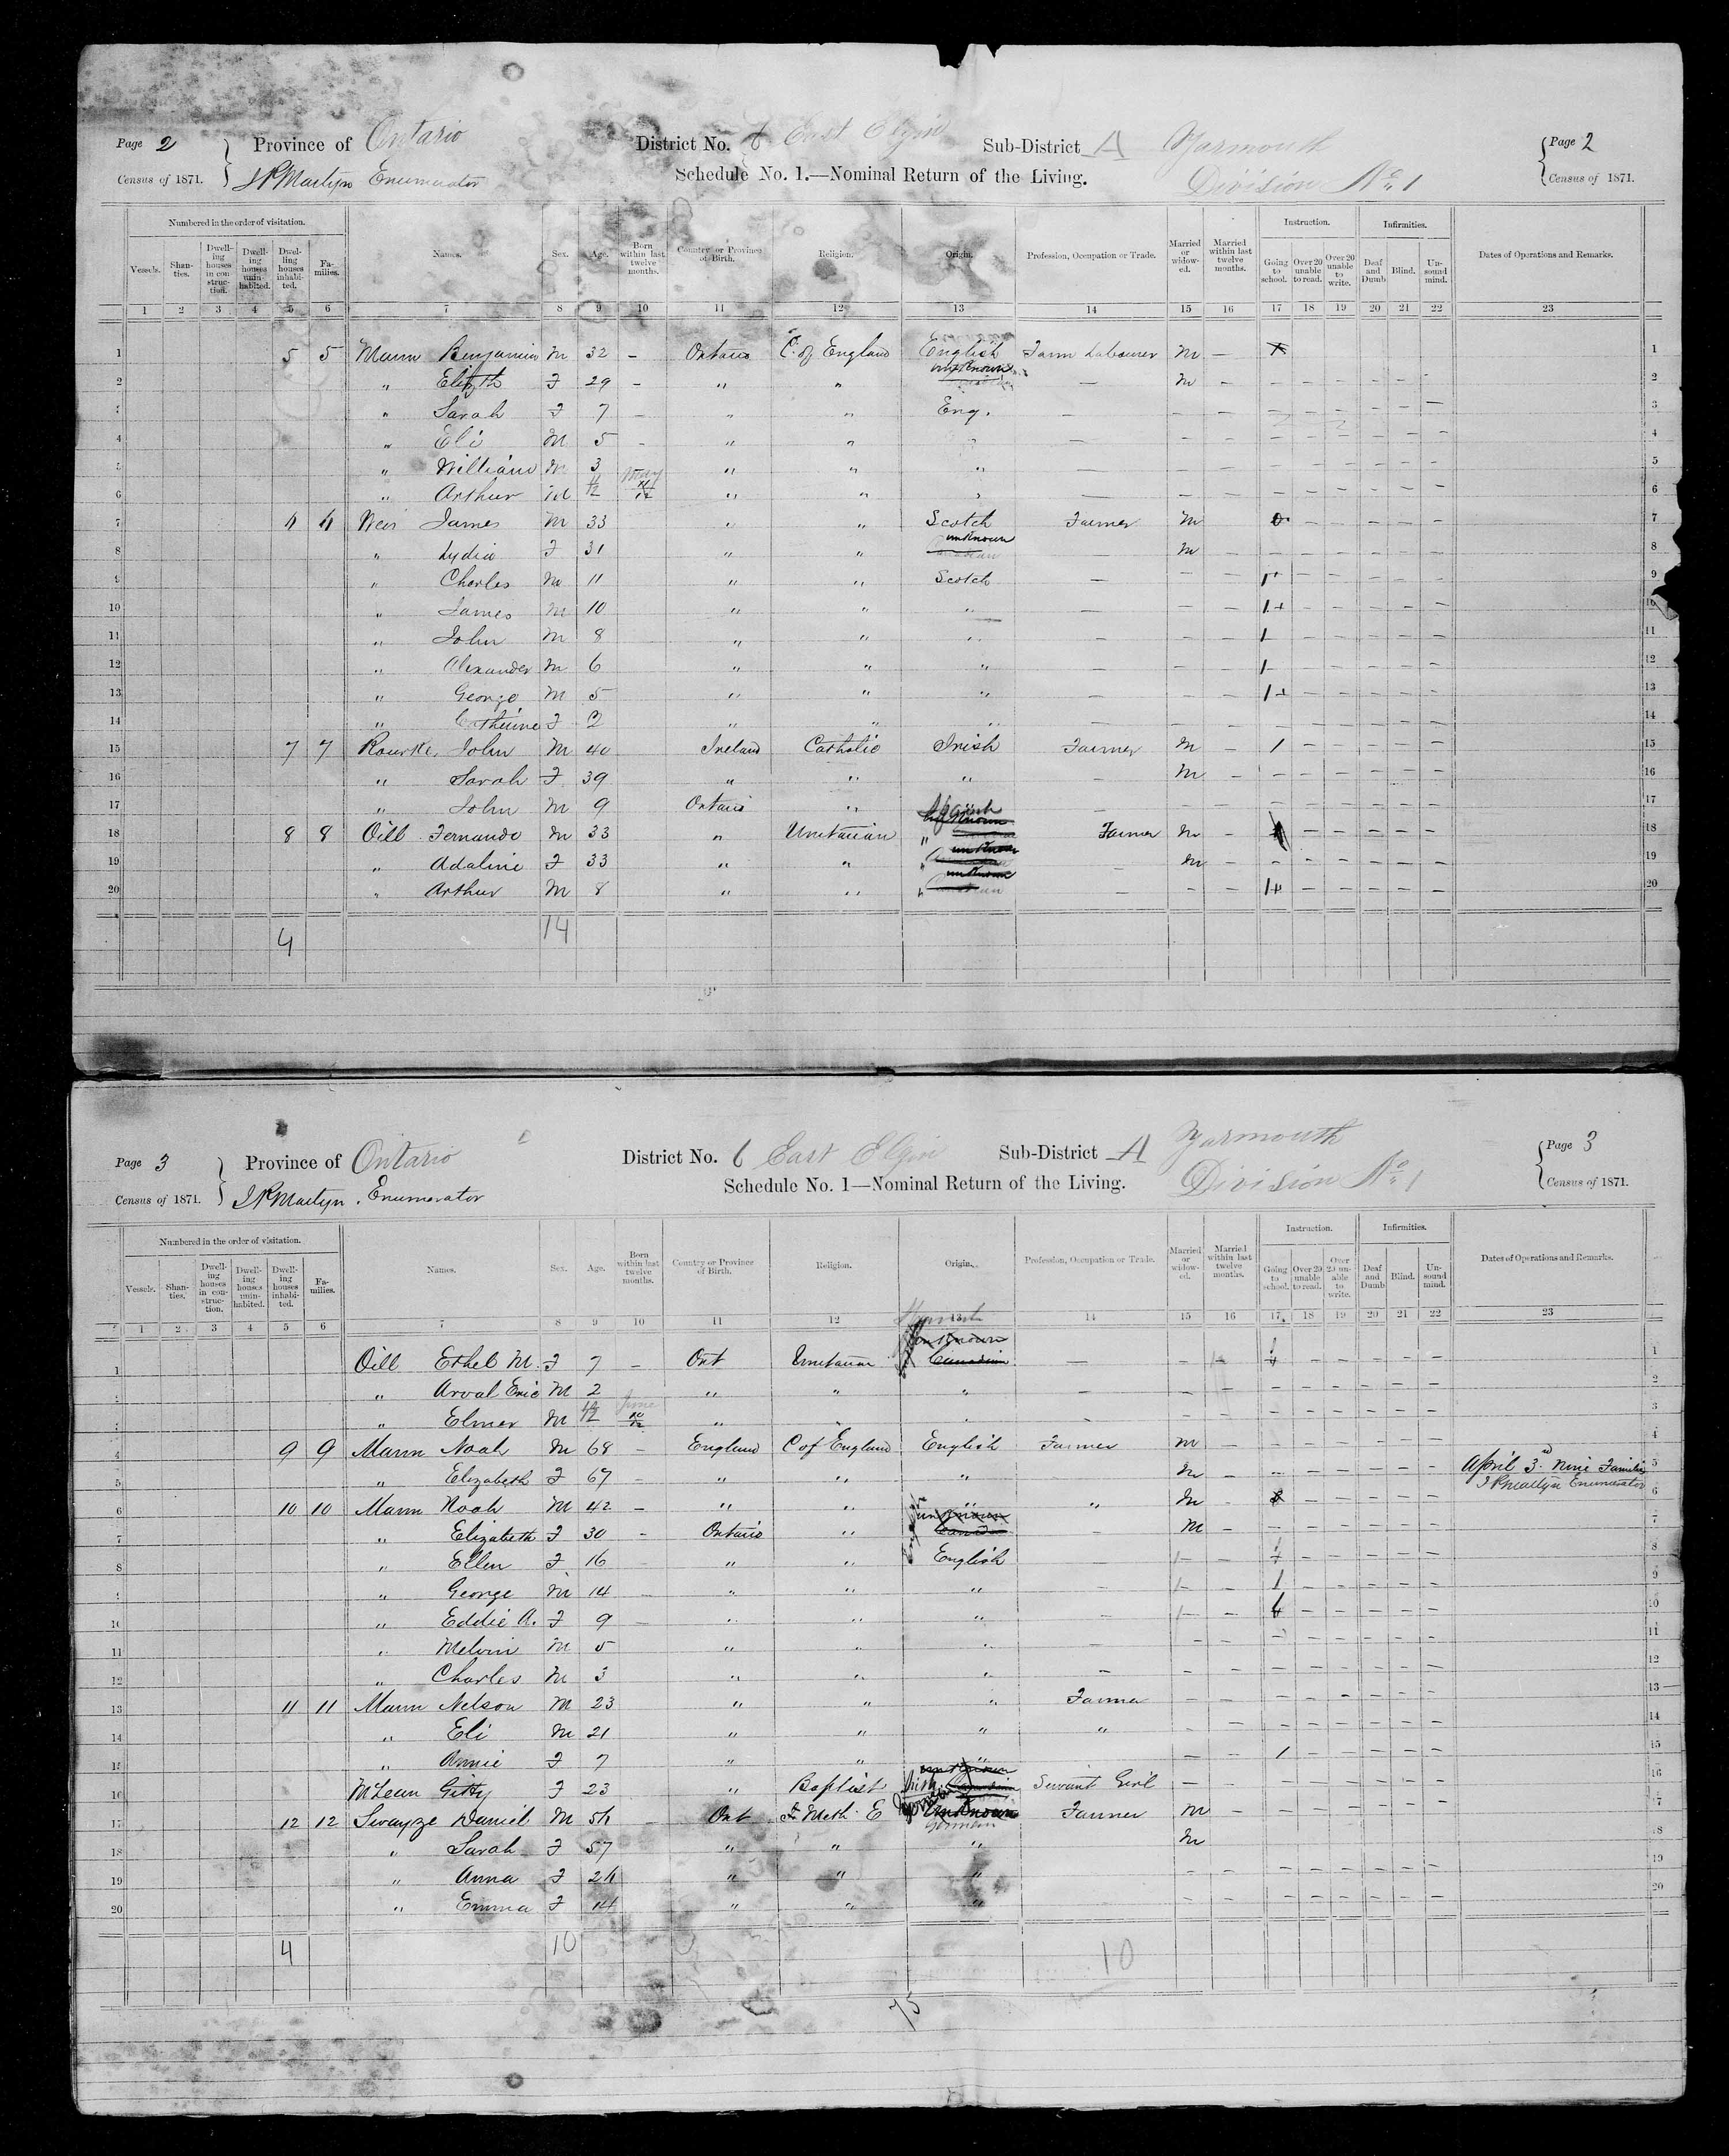 Page 2 Province of Ontario District No. 6 East Elgin Sub-District A Yarmouth Page 2
Census of 1871. J P Martyn Enumerator Schedule No. 1.—Nominal Return of the Living. Division No. 1 Census of 1871.
Numbered in the order of visitation. Instruction. Infirmities.
Vessels. Shan-ties. Dwell-ing houses in con-struc-tion. Dwell-ing houses unin-habited. Dwel-ling houses inhabi-ted. Fa-milies. Names. Sex. Age. Born within last twelve months. Country or Province of Birth. Religion. Origin. Profession, Occupation or Trade. Married or widow-ed. Married within last twelve months. Going to school. Over 20 unable to read. Over 20 unable to write. Deaf and Dumb Blind. Un-sound mind. Dates of Operations and Remarks.
1 2 3 4 5 6 7 8 9 10 11 12 13 14 15 16 17 18 19 20 21 22 23
1 5 5 Mann Benjamin M 32 – Ontario C. of England English Farm Labourer M – 1
2 " Elizth F 29 – " " unknown – M – – – – – – – 2
3 " Sarah F 7 – " " Eng. – – – – – – – – – 3
4 " Eli M 5 – " " " – – – – – – – – – 4
5 " William M 3 " " " – – – – – – – – – 5
6 " Arthur M 11/12 May 11/12 " " " – – – – – – – – – 6
7 4 4 Weir James M 33 " " Scotch Farmer M – – – – – – 7
8 " Lydia F 31 " " unknown – M – – – – – – – 8
9 " Charles M 11 " " Scotch – – – 1 – – – – – 9
10 " James M 10 " " " – – – 1 – – – – – 10
11 " John M 8 " " " – – – 1 – – – – – 11
12 " Alexander M 6 " " " – – – 1 – – – – – 12
13 " George M 5 " " " – – – 1 – – – – – 13
14 " Catherine F 2 " " " – – – – – – – – – 14
15 7 7 Rourke, John M 40 Ireland Catholic Irish Farmer M – 1 – – – – – 15
16 " Sarah F 39 " " " – M – – – – – – – 16
17 " John M 9 Ontario " – – – – – – – – – 17
18 8 8 Oill Fernando M 33 " Unitarian " Farmer M – – – – – – 18
19 " Adaline F 33 " " " unknown – M – – – – – – – 19
20 " Arthur M 8 " " " unknown – – – 1 – – – – – 20
4 14
Page 3 Province of Ontario District No. 6 East Elgin Sub-District A Yarmouth Page 3
Census of 1871. J P Martyn. Enumerator Schedule No. 1—Nominal Return of the Living. Division No. 1 Census of 1871.
Numbered in the order of visitation. Instruction. Infirmities.
Vessels. Shan-ties. Dwell-ing houses in con-struc-tion. Dwell-ing houses unin-habited. Dwel-ling houses inhabi-ted. Fa-milies. Names. Sex. Age. Born within last twelve months. Country or Province of Birth. Religion. Origin. Profession, Occupation or Trade. Married or widow-ed. Married within last twelve months. Going to school. Over 20 unable to read. Over 20 un-able to write. Deaf and Dumb Blind. Un-sound mind. Dates of Operations and Remarks.
1 2 3 4 5 6 7 8 9 10 11 12 13 14 15 16 17 18 19 20 21 22 23
1 Oill Ethel M. F 7 – Ont Unitarian unknown Canadian – – – – – – – – 1
2 " Arval Eric M 2 " " " – – – – – – – – – 2
3 " Elmer M 10/12 June 10/12 " – – – – – – – – 3
4 9 9 Mann Noah M 68 – England C of England English Farmer M – – – – – – – 4
5 " Elizabeth F 67 – " " " M – – – – – – – April 3rd Nine Families 5
6 10 10 Mann Noah M 42 – " " " " M – – – – – – J P Martyn Enumerator 6
7 " Elizabeth F 30 – Ontario " unknown – M – – – – – – – 7
8 " Ellen F 16 – " " English – – 1 – – – – – 8
9 " George M 14 – " " " – – 1 – – – – – 9
10 " Eddie A. F 9 – " " " – – – – – – – 10
11 " Melvin M 5 " " " – – – – – – – – – 11
12 " Charles M 3 " " " – – – – – – – – – 12
13 11 11 Mann Nelson M 23 " " " Farmer – – – – – – – – 13
14 " Eli M 21 " " " " – – – – – – – – 14
15 " Annie F 7 " " " – – 1 – – – – – 15
16 McLean Gitty F 23 " Baptist Irish Servant Girl – – – – – – – – 16
17 12 12 Swayze Daniel M 54 – Ont Meth. E unknown German Farmer M – – – – – – – 17
18 " Sarah F 57 " " " M 18
19 " Anna F 24 " " " – – – – – – – – 19
20 " Emma F 14 " " " – – – – – – – – 20
4 10 10
75